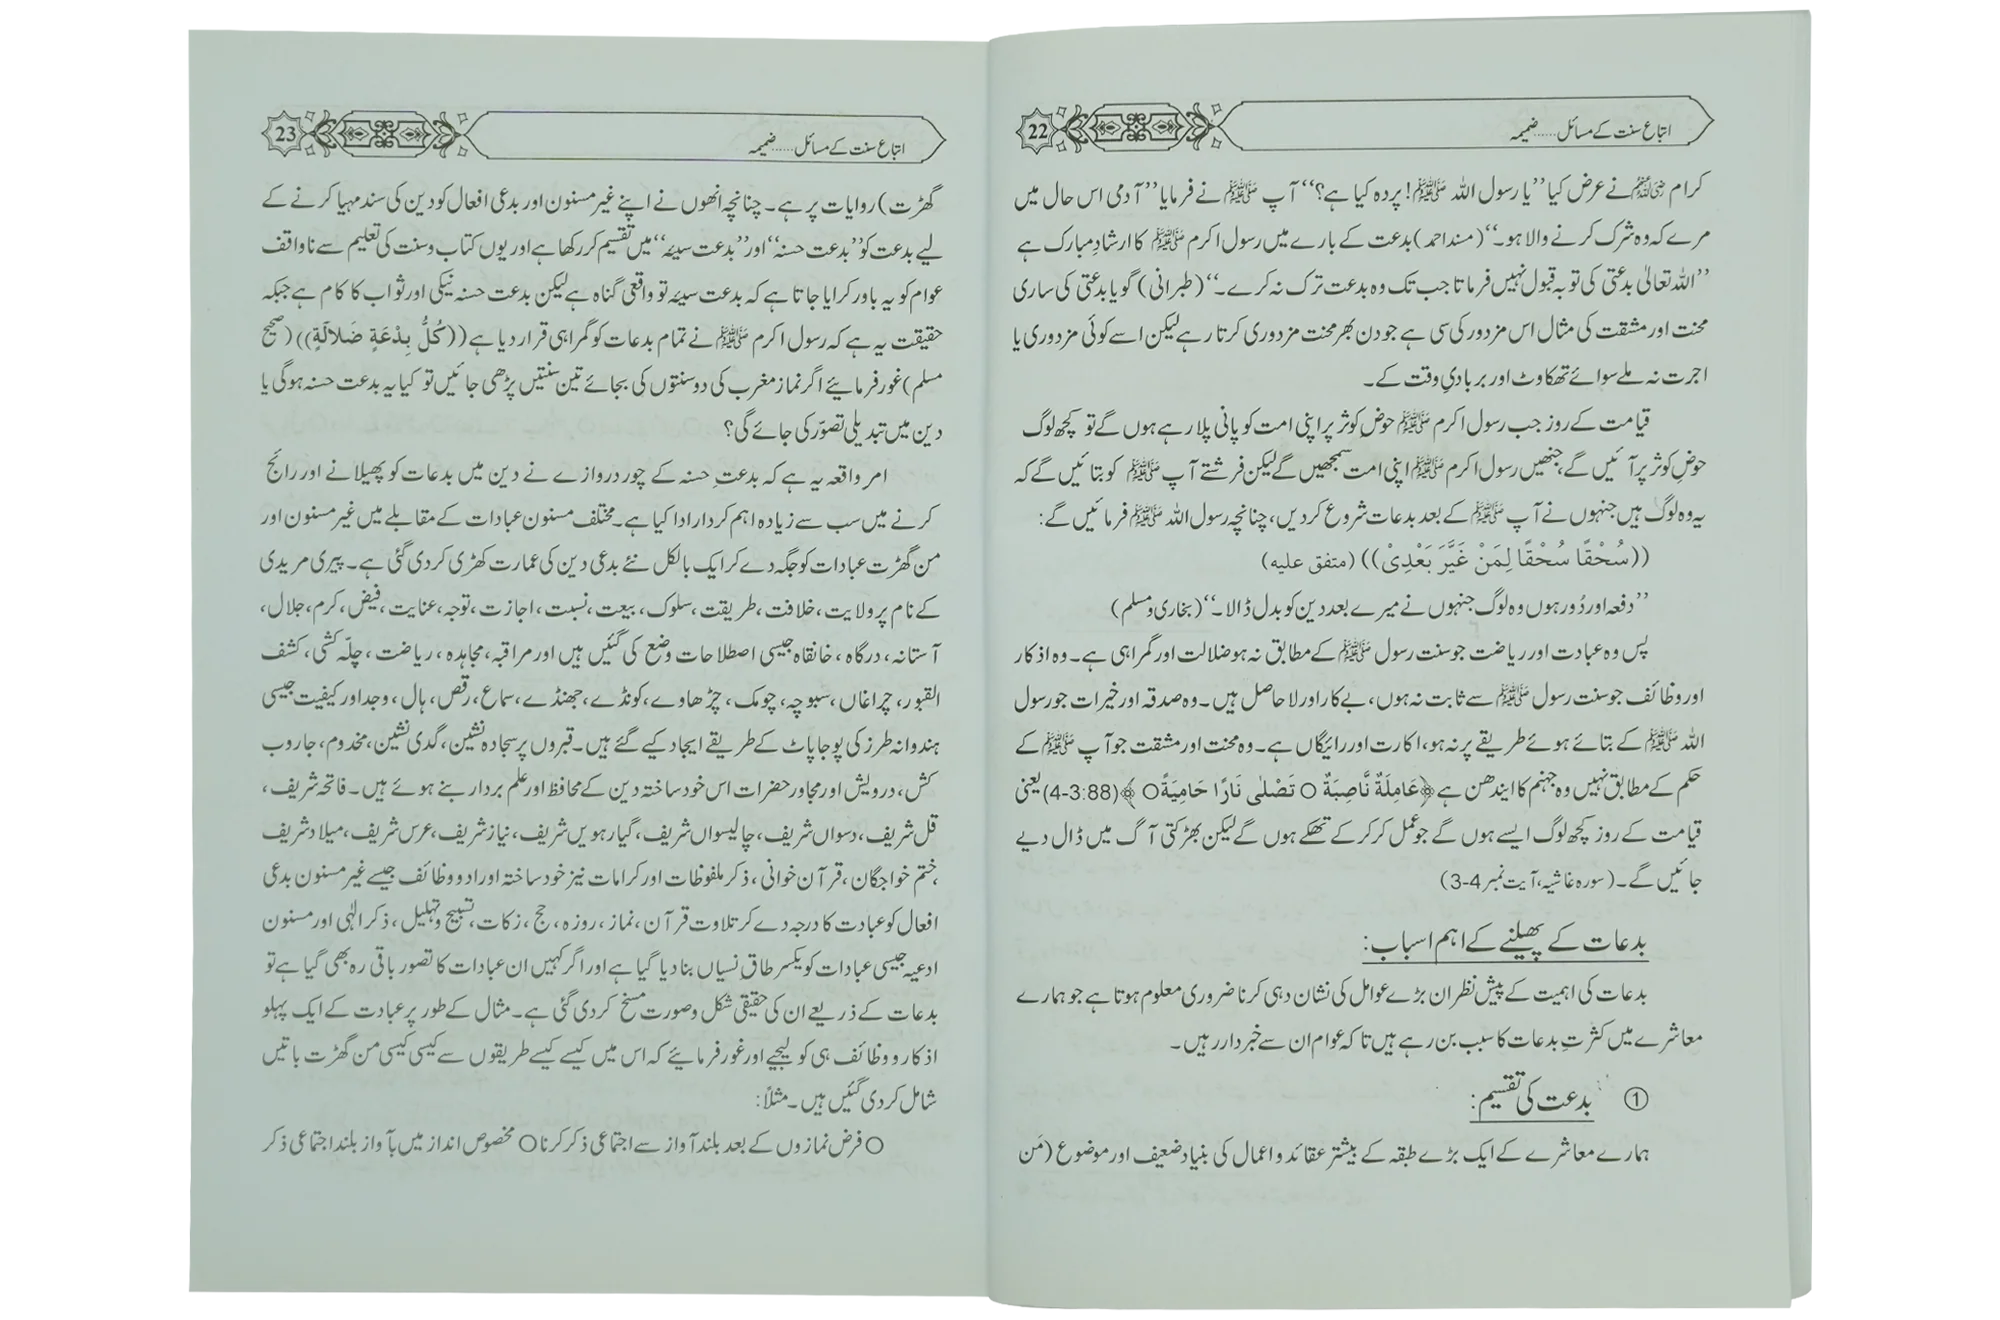 اتباع سنت کے مسائل......ضمیمہ
22
کرام رضی اللہ عنہم نے عرض کیا ’’یا رسول اللہ ﷺ! پردہ کیا ہے؟‘‘ آپ ﷺ نے فرمایا ’’آدمی اس حال میں
مرے کہ وہ شرک کرنے والا ہو۔‘‘ (مسند احمد) بدعت کے بارے میں رسول اکرم ﷺ کا ارشادِ مبارک ہے
’’اللہ تعالیٰ بدعتی کی توبہ قبول نہیں فرماتا جب تک وہ بدعت ترک نہ کرے۔‘‘ (طبرانی) گویا بدعتی کی ساری
محنت اور مشقت کی مثال اس مزدور کی سی ہے جو دن بھر محنت مزدوری کرتا رہے لیکن اسے کوئی مزدوری یا
اجرت نہ ملے سوائے تھکاوٹ اور بربادیِ وقت کے۔
قیامت کے روز جب رسول اکرم ﷺ حوضِ کوثر پر اپنی امت کو پانی پلا رہے ہوں گے تو کچھ لوگ
حوضِ کوثر پر آئیں گے، جنھیں رسول اکرم ﷺ اپنی امت سمجھیں گے لیکن فرشتے آپ ﷺ کو بتائیں گے کہ
یہ وہ لوگ ہیں جنہوں نے آپ ﷺ کے بعد بدعات شروع کردیں، چنانچہ رسول اللہ ﷺ فرمائیں گے:
((سُحْقًا سُحْقًا لِمَنْ غَيَّرَ بَعْدِيْ)) (متفق علیہ)
’’دفعہ اور دُور ہوں وہ لوگ جنہوں نے میرے بعد دین کو بدل ڈالا۔‘‘ (بخاری و مسلم)
پس وہ عبادت اور ریاضت جو سنت رسول ﷺ کے مطابق نہ ہو ضلالت اور گمراہی ہے۔ وہ اذکار
اور وظائف جو سنت رسول ﷺ سے ثابت نہ ہوں، بے کار اور لاحاصل ہیں۔ وہ صدقہ اور خیرات جو رسول
اللہ ﷺ کے بتائے ہوئے طریقے پر نہ ہو، اکارت اور رائیگاں ہے۔ وہ محنت اور مشقت جو آپ ﷺ کے
حکم کے مطابق نہیں وہ جہنم کا ایندھن ہے ﴿عَامِلَةٌ نَّاصِبَةٌ ○ تَصْلٰى نَارًا حَامِيَةً ○﴾ (4-3:88) یعنی
قیامت کے روز کچھ لوگ ایسے ہوں گے جو عمل کر کر کے تھکے ہوں گے لیکن بھڑکتی آگ میں ڈال دیے
جائیں گے۔ (سورہ غاشیہ، آیت نمبر 4-3)
بدعات کے پھیلنے کے اہم اسباب:
بدعات کی اہمیت کے پیش نظر ان بڑے عوامل کی نشان دہی کرنا ضروری معلوم ہوتا ہے جو ہمارے
معاشرے میں کثرتِ بدعات کا سبب بن رہے ہیں تاکہ عوام ان سے خبردار رہیں۔
① بدعت کی تقسیم:
ہمارے معاشرے کے ایک بڑے طبقہ کے بیشتر عقائد و اعمال کی بنیاد ضعیف اور موضوع (مَن
اتباع سنت کے مسائل......ضمیمہ
23
گھڑت) روایات پر ہے۔ چنانچہ انھوں نے اپنے غیر مسنون اور بدعی افعال کو دین کی سند مہیا کرنے کے
لیے بدعت کو ’’بدعت حسنہ‘‘ اور ’’بدعت سیئہ‘‘ میں تقسیم کر رکھا ہے اور یوں کتاب و سنت کی تعلیم سے ناواقف
عوام کو یہ باور کرایا جاتا ہے کہ بدعت سیئہ تو واقعی گناہ ہے لیکن بدعت حسنہ نیکی اور ثواب کا کام ہے جبکہ
حقیقت یہ ہے کہ رسول اکرم ﷺ نے تمام بدعات کو گمراہی قرار دیا ہے ((كُلُّ بِدْعَةٍ ضَلَالَةٌ)) (صحیح
مسلم) غور فرمائیے اگر نماز مغرب کی دو سنتوں کی بجائے تین سنتیں پڑھی جائیں تو کیا یہ بدعت حسنہ ہوگی یا
دین میں تبدیلی تصوّر کی جائے گی؟
امر واقعہ یہ ہے کہ بدعتِ حسنہ کے چور دروازے نے دین میں بدعات کو پھیلانے اور رائج
کرنے میں سب سے زیادہ اہم کردار ادا کیا ہے۔ مختلف مسنون عبادات کے مقابلے میں غیر مسنون اور
من گھڑت عبادات کو جگہ دے کر ایک بالکل نئے بدعی دین کی عمارت کھڑی کردی گئی ہے۔ پیری مریدی
کے نام پر ولایت، خلافت، طریقت، سلوک، بیعت، نسبت، اجازت، توجہ، عنایت، فیض، کرم، جلال،
آستانہ، درگاہ، خانقاہ جیسی اصطلاحات وضع کی گئیں ہیں اور مراقبہ، مجاہدہ، ریاضت، چلّہ کشی، کشف
القبور، چراغاں، سبوچہ، چومک، چڑھاوے، کونڈے، جھنڈے، سماع، رقص، ہال، وجد اور کیفیت جیسی
ہندوانہ طرز کی پوجا پاٹ کے طریقے ایجاد کیے گئے ہیں۔ قبروں پر سجادہ نشین، گدی نشین، مخدوم، جاروب
کش، درویش اور مجاور حضرات اس خود ساختہ دین کے محافظ اور علم بردار بنے ہوئے ہیں۔ فاتحہ شریف،
قل شریف، دسواں شریف، چالیسواں شریف، گیارہویں شریف، نیاز شریف، عرس شریف، میلاد شریف
،ختم خواجگان، قرآن خوانی، ذکر ملفوظات اور کرامات نیز خود ساختہ اوراد و وظائف جیسے غیر مسنون بدعی
افعال کو عبادت کا درجہ دے کر تلاوت قرآن، نماز، روزہ، حج، زکات، تسبیح و تہلیل، ذکر الٰہی اور مسنون
ادعیہ جیسی عبادات کو یکسر طاقِ نسیاں بنا دیا گیا ہے اور اگر کہیں ان عبادات کا تصور باقی رہ بھی گیا ہے تو
بدعات کے ذریعے ان کی حقیقی شکل و صورت مسخ کردی گئی ہے۔ مثال کے طور پر عبادت کے ایک پہلو
اذکار و وظائف ہی کو لیجیے اور غور فرمائیے کہ اس میں کیسے کیسے طریقوں سے کیسی کیسی من گھڑت باتیں
شامل کردی گئیں ہیں۔ مثلاً:
○ فرض نمازوں کے بعد بلند آواز سے اجتماعی ذکر کرنا ○ مخصوص انداز میں بآواز بلند اجتماعی ذکر